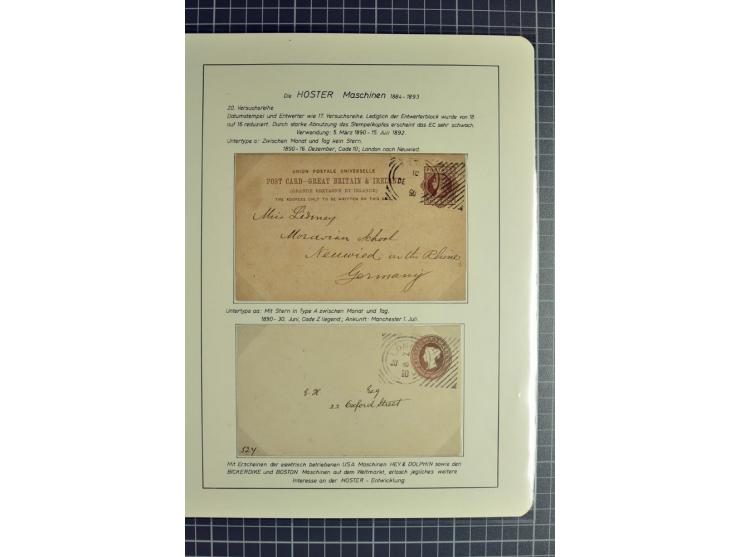 Die HOSTER Maschinen 1884-1893
20. Versuchsreihe
Datumstempel und Entwerter wie 17. Versuchsreihe. Lediglich der Entwerterblock wurde von 18
auf 16 reduziert. Durch starke Abnutzung des Stempelkopfes erscheint das EC sehr schwach.
Verwendung: 5. März 1890 - 15. Juli 1892.
Untertype a: Zwischen Monat und Tag kein Stern.
1890-16. Dezember, Code 10; London nach Neuwied.
UNION POSTALE UNIVERSELLE
POST CARD-GREAT BRITAIN & IRELAND
(GRANDE BRETAGNE ET IRLANDE)
THE ADDRESS ONLY TO BE WRITTEN ON THIS
10
DE
90
Miss
Moravian School
Neuwied on the Rhine
Germany
Untertype aa: Mit Stern in Type A zwischen Monat und Tag.
1890-30. Juni, Code Z liegend; Ankunft: Manchester 1. Juli.
90
Esq
22 Oxford Street
524
Mit Erscheinen der elektrisch betriebenen USA Maschinen HEY & DOLPHIN sowie den
BICKERDIKE und BOSTON Maschinen auf dem Weltmarkt, erlosch jegliches weitere
Interesse an der HOSTER - Entwicklung.